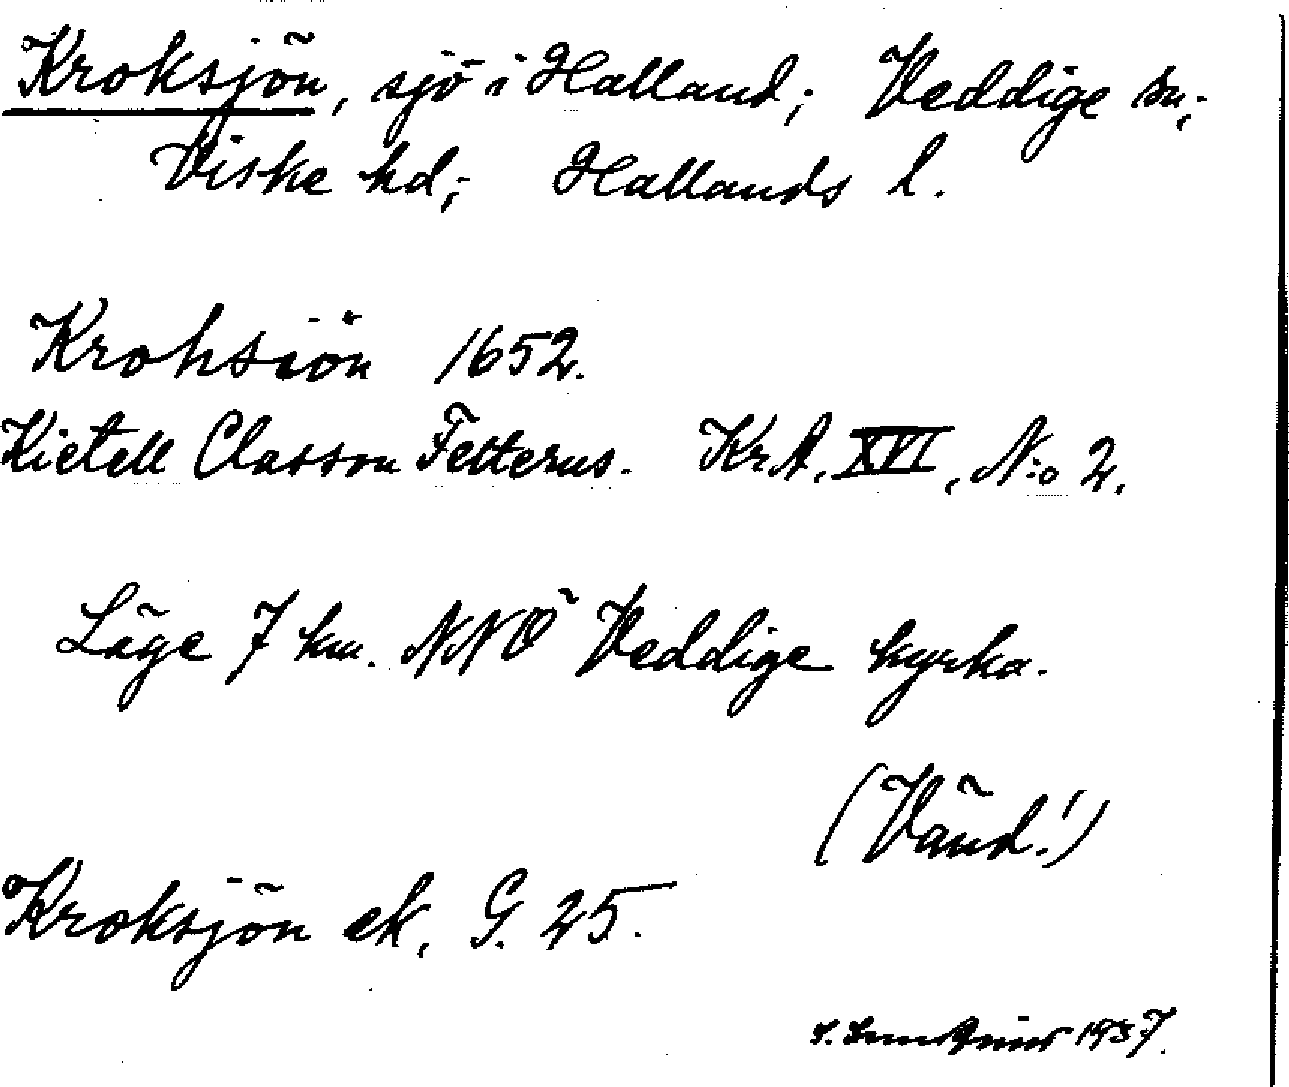 Kroksjön, sjö i Halland; Veddige sn;
Viske hd; Hallands l.
Krohsiön 1652.
Kietell Classon Felterus. KrA. XVI, N:o 2.
Läge 7 km. NNÖ Veddige kyrka.
(Vänd!)
Kroksjön ek. G. 25.
1937.